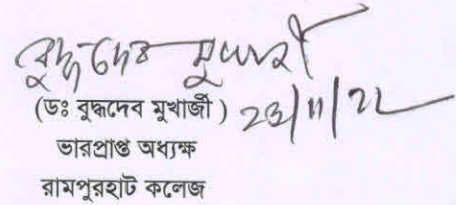 বুদ্ধদেব মুখার্জী
(ডঃ বুদ্ধদেব মুখার্জী) 23/11/22
ভারপ্রাপ্ত অধ্যক্ষ
রামপুরহাট কলেজ